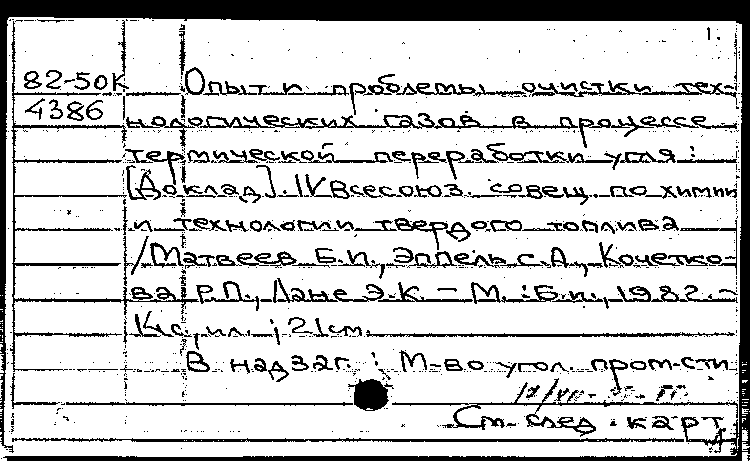 1.
82-50К Опыт и проблемы очистки тех-
4386 нологических газов в процессе
термической переработки угля:
[Доклад]. IV Всесоюз. совещ. по химии
и технологии твердого топлива
/Матвеев Б.И., Эппель С.А., Кочетко-
ва Р.П., Лане Э.К. – М. : Б.и., 1982. –
с., ил. ; 21 см.
В надзаг. : М-во угол. пром-сти
См. след. карт.